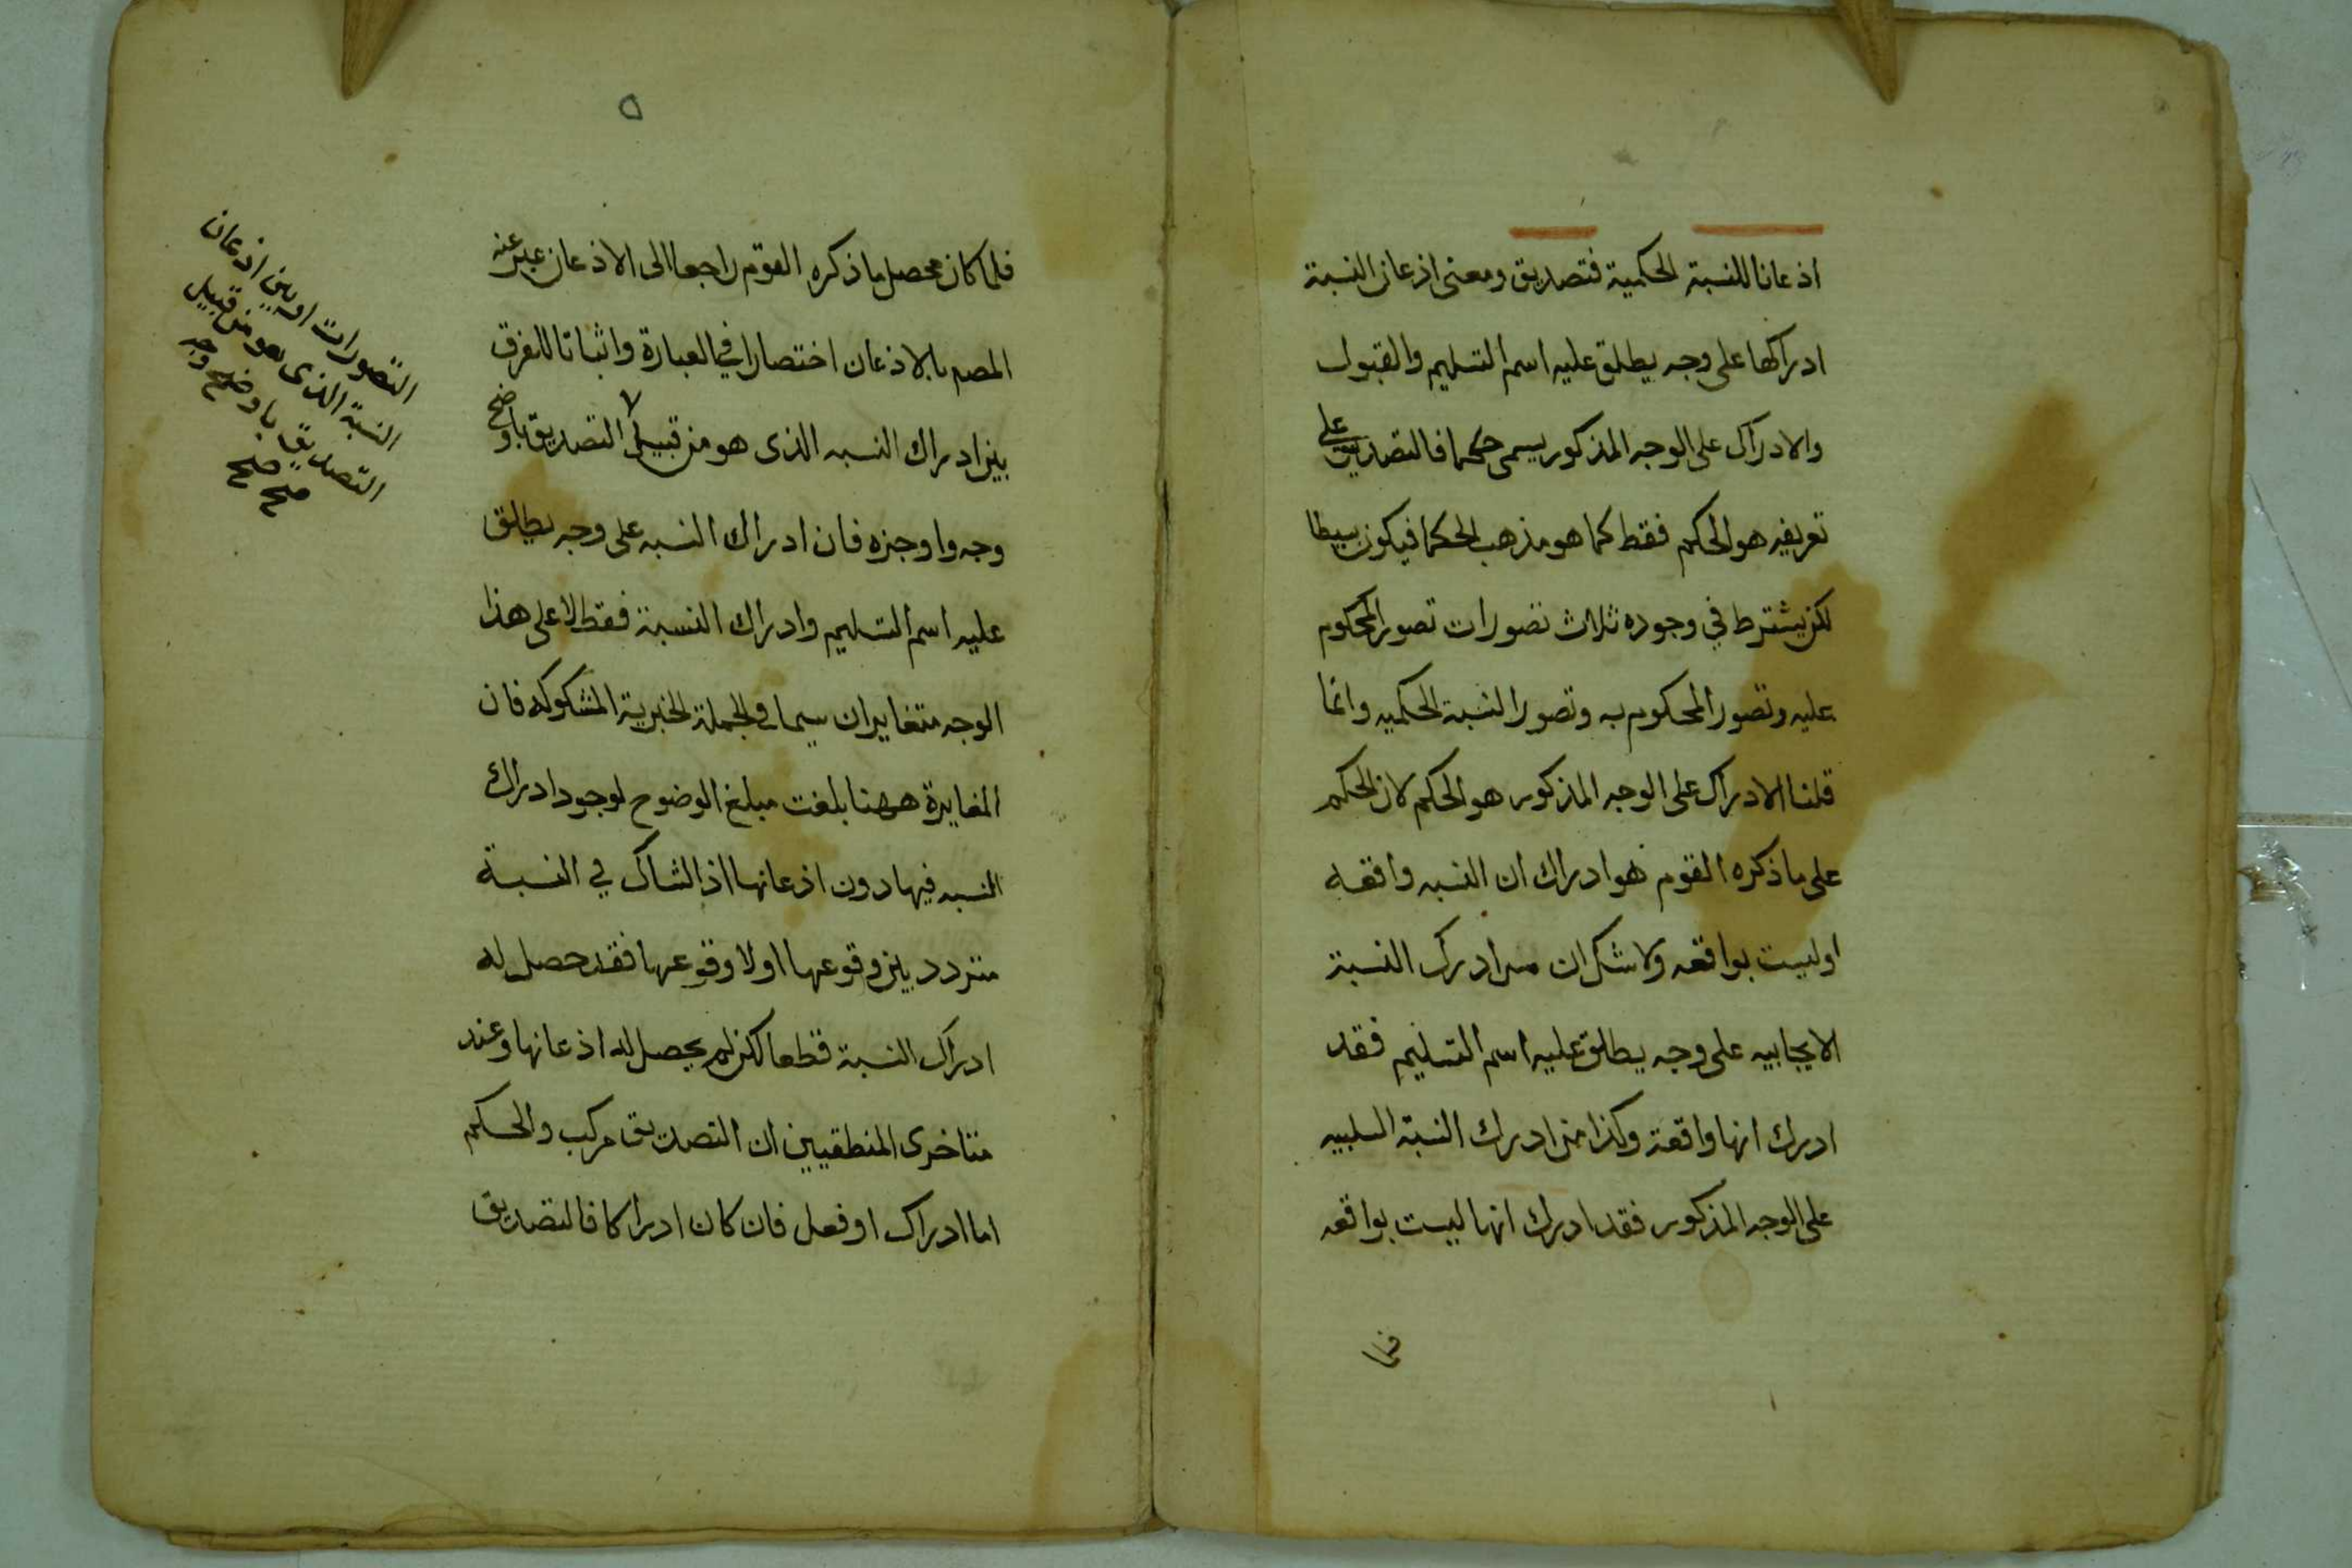 اذعانا للنسبة الحكمية فتصديق ومعنى اذعان النسبة
ادراكها على وجه يطلق عليه اسم التسليم والقبول
والادراك على الوجه المذكور يسمى حكما فالتصديق على
تعريفه هو الحكم فقط كما هو مذهب الحكما فيكون بسيطا
لكن يشترط في وجوده ثلاث تصورات تصور المحكوم
عليه وتصور المحكوم به وتصور النسبة الحكميه وانما
قلنا الادراك على الوجه المذكور هو الحكم لان الحكم
على ما ذكره القوم هو ادراك ان النسبه واقعه
او ليست بواقعه ولا شك ان من ادرك النسبة
الايجابيه على وجه يطلق عليه اسم التسليم فقد
ادرك انها واقعة وكذا من ادرك النسبة السلبيه
على الوجه المذكور فقد ادرك انها ليست بواقعه
٥
فلما كان محصل ما ذكره القوم راجعا الى الاذعان عبر عنه
المصم بالاذعان اختصارا في العبارة واثباتا للفرق
بين ادراك النسبه الذى هو من قبيل التصديق باوضح
وجه واوجزه فان ادراك النسبه على وجه يطلق
عليه اسم التسليم وادراك النسبة فقط لا على هذا
الوجه متغايران سيما فى الجملة الخبرية المشكوكه فان
المغايرة ههنا بلغت مبلغ الوضوح لوجود ادراك
النسبه فيها دون اذعانها اذ الشاك في النسبة
متردد بين وقوعها او لا وقوعها فقد حصل له
ادراك النسبة قطعا لكن لم يحصل له اذعانها وعند
متاخرى المنطقيين ان التصديق مركب والحكم
اما ادراك او فعل فان كان ادراكا فالتصديق
التصورات وبين اذعان
النسبة الذى هو من قبيل
التصديق باوضح وجه
صح صح